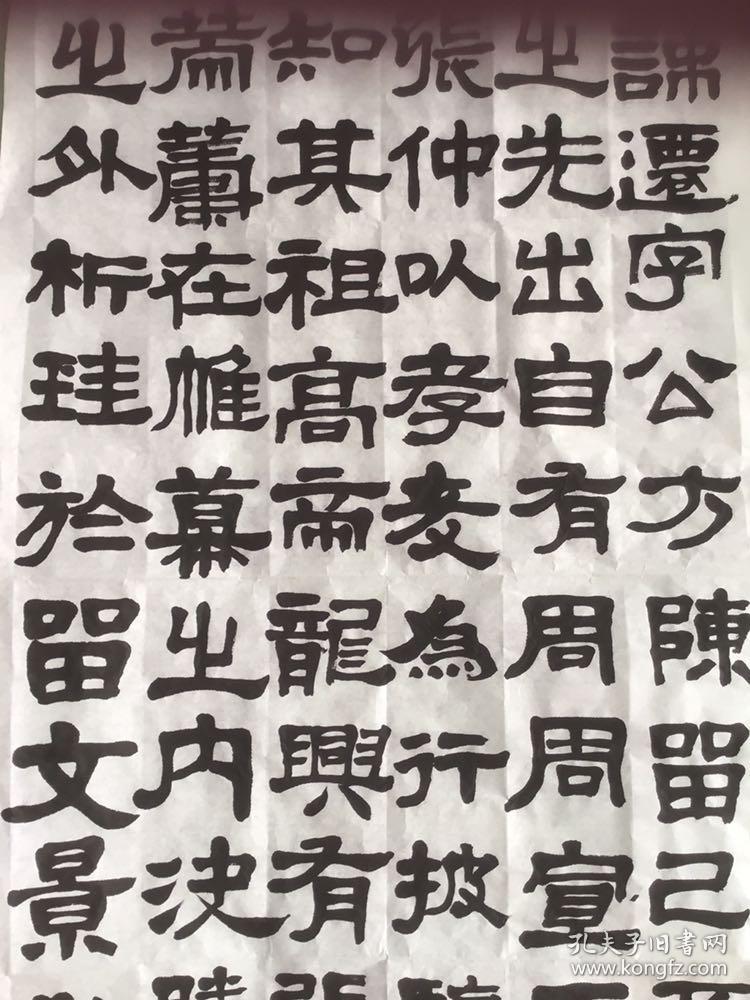 遷字公方陳留己
之先出自有周周宣
張仲以孝友為行披
知其祖高帝龍興有張
在帷幕之內決勝
之外析珪於留文景
孔夫子旧書网
www.kongfz.com